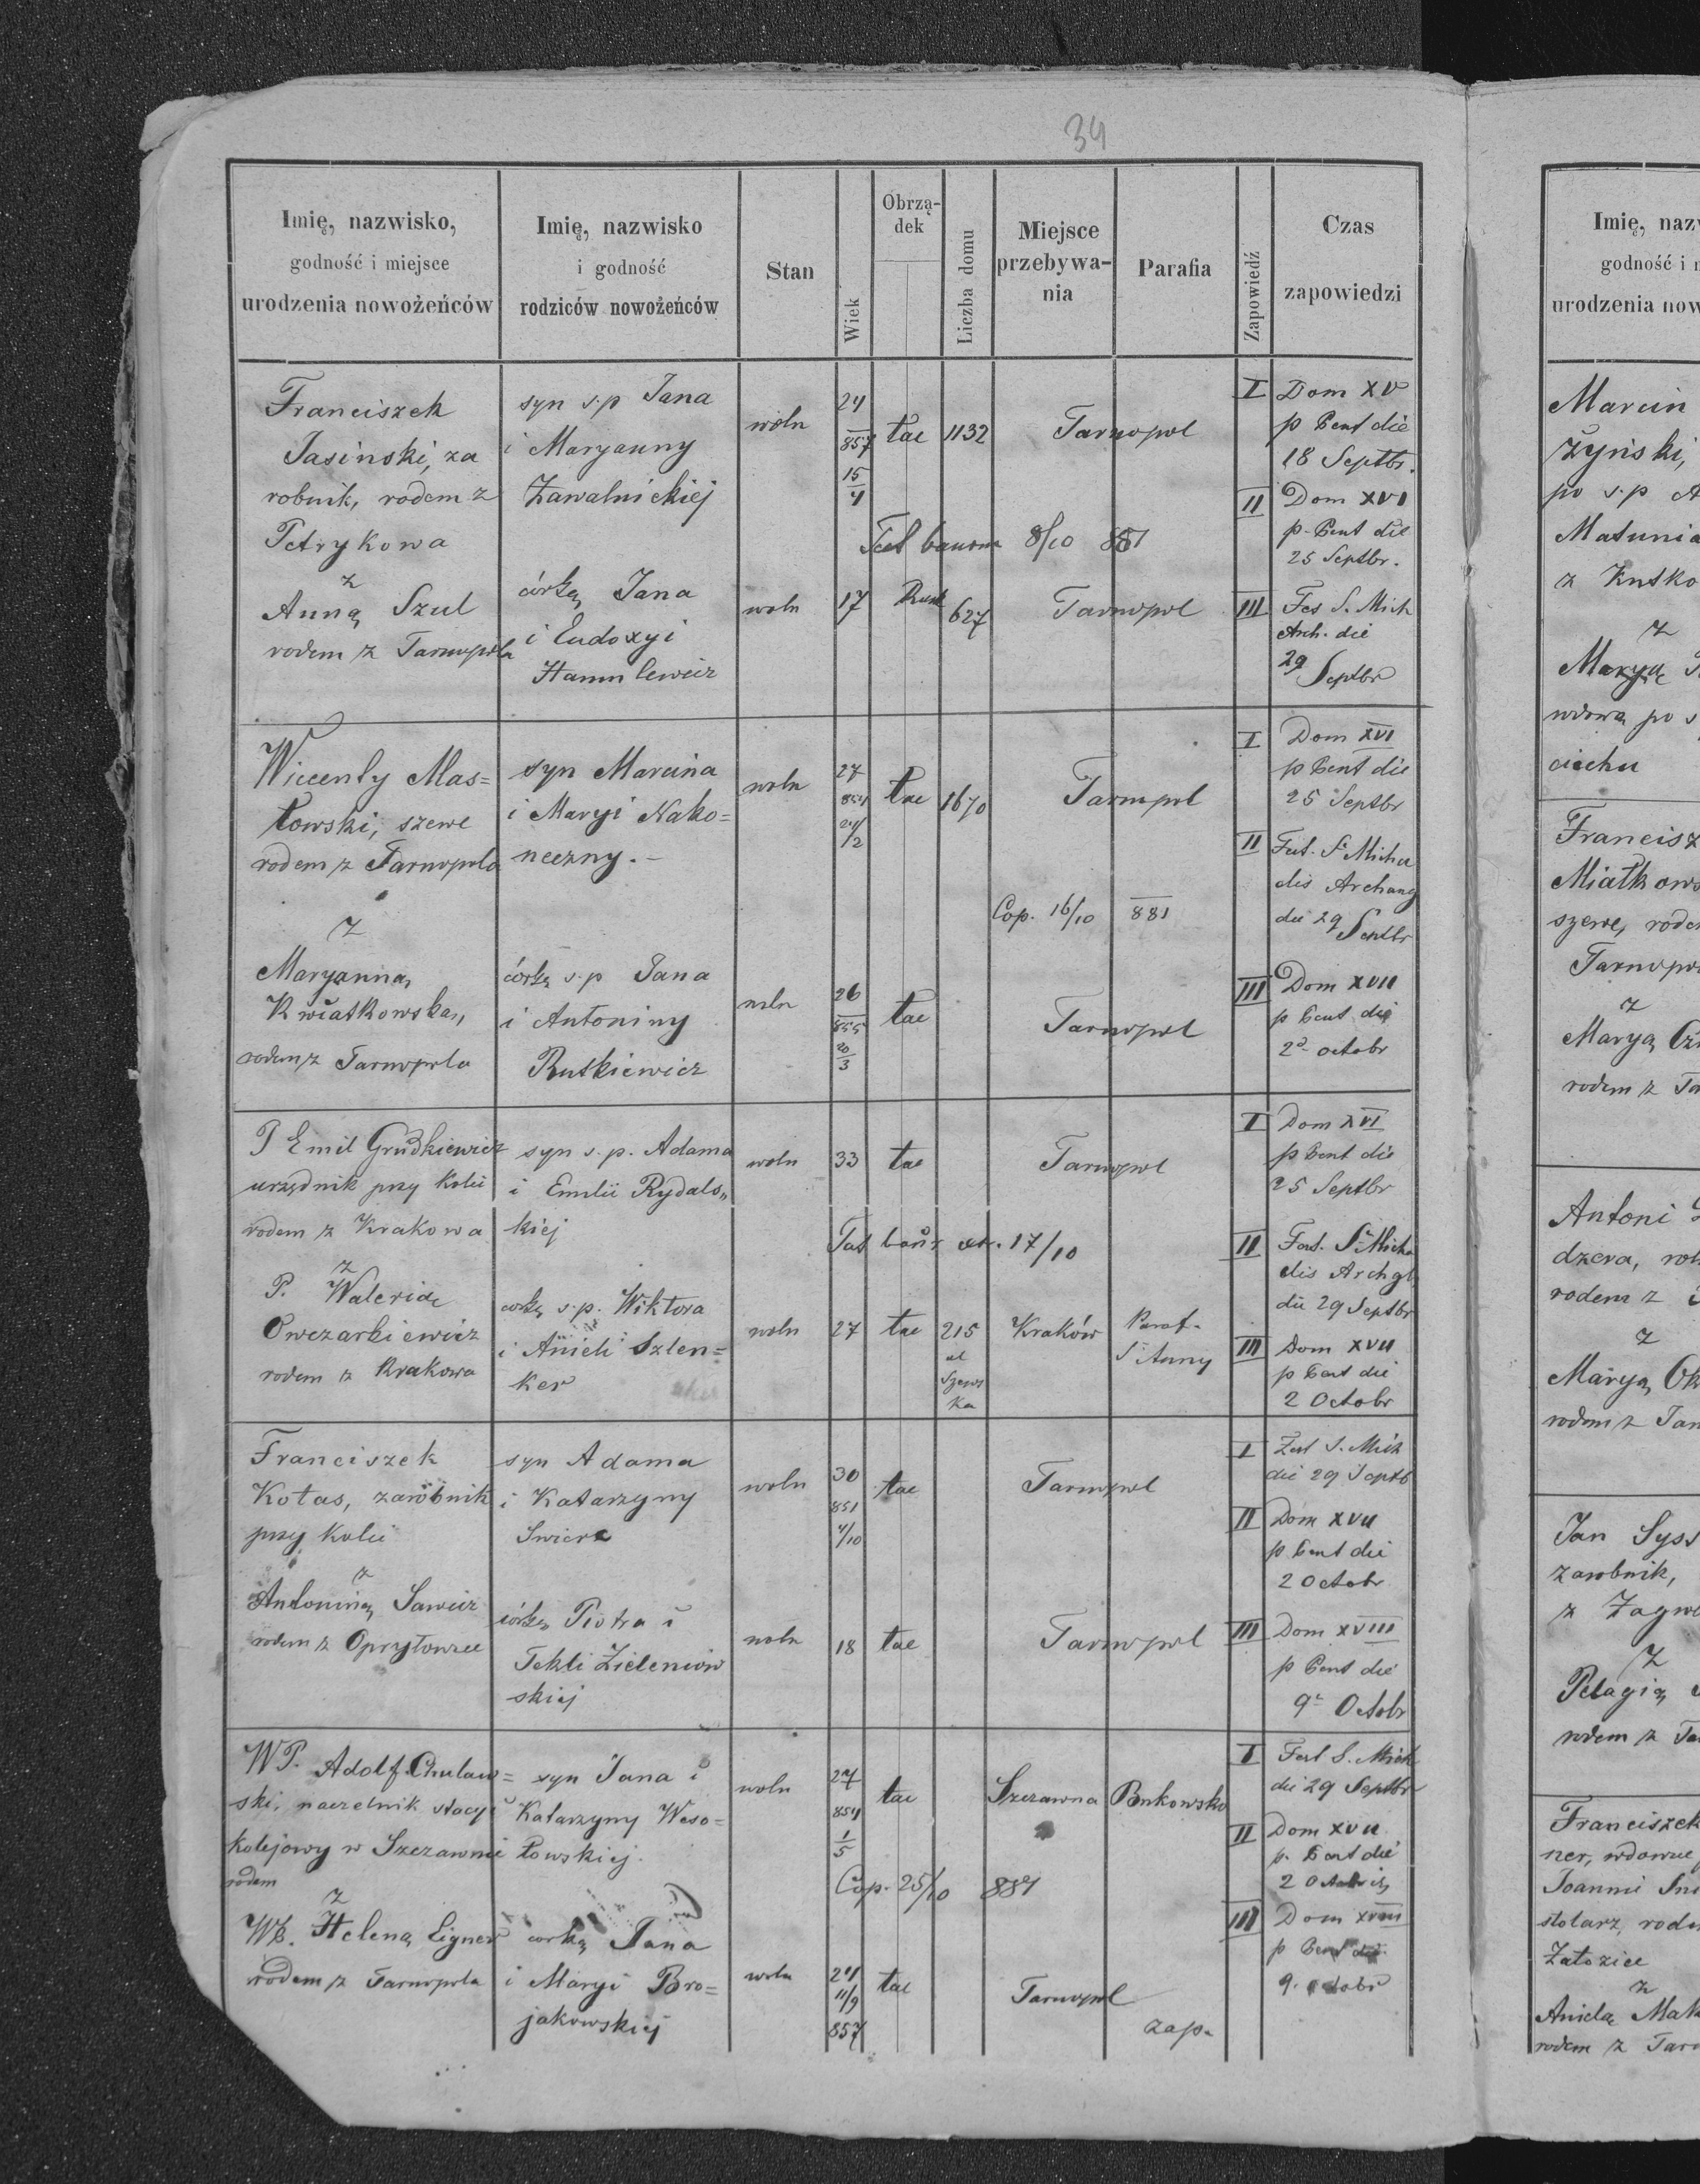 34
Imię, nazwisko,
godność i miejsce
urodzenia nowożeńców
Imię, nazwisko
i godność
rodziców nowożeńców
Stan
Wiek
Obrzą-
dek
Liczba domu
Miejsce
przebywa-
nia
Parafia
Zapowiedź
Czas
zapowiedzi
Franciszek
Jasinski, za
robnik, rodem z
Petrykowa
z
Anną Szul
rodem z Tarnopola
syn s.p Jana
i Maryanny
Zawalnickiej
córką Jana
i Eudoxyi
woln
24
857
15
4
łac
1132
Tarnopol
8/10 881
woln
17
627
Tarnopol
I
Dom XV
p Pent die
18 Septbr.
II
Dom XVI
p. Pent die
25 Septbr.
III
Fes S. Mich
Arch. die
29 Septbr
Wicenty Mas=
łowski, szewc
rodem z Tarnopola
z
Maryanną
Kwiatkowską,
rodem z Tarnopola
syn Marcina
i Maryi Nako=
neczny.-
córką s.p Jana
i Antoniny
Rutkiewicz
woln
27
854
24/2
łac
1670
Tarnopol
Cop. 16/10 881
woln
26
855
20
3
łac
Tarnopol
I
Dom XVI
p Pent die
25 Septbr
II
Fest. S Micha
elis Archang
die 29 Septbr
III
Dom XVII
p Pent die
2 octobr
P Emil Grudkiewicz
urzędnik przy Kolei
rodem z Krakowa
z
P. Walerią
Owczarkiewicz
rodem z Krakowa
syn s.p. Adama
i Emilii Rydals„
kiej
corką s.p. Wiktora
i Anieli Szlen=
ker
woln
33
łac
Tarnopol
17/10
woln
27
łac
215
ul
Szews
ka
Kraków
Paraf.
S Anny
I
Dom XVI
p Pent die
25 Septbr
II
Fest. S Micha
elis Archgl
die 29 Septbr
III
Dom XVII
p Pent die
2 Octobr
Franciszek
Kotas, zarobnik
przy kolei
z
Antoniną Sawicz
rodem z Opryłowiec
syn Adama
i Katarzyny
córką Piotra i
Tekli Zieleniow
skiej
woln
30
851
4/10
łac
Tarnopol
woln
18
łac
Tarnopol
I
Fest S. Mich
die 29 Septb
II
Dom XVII
p Pent die
2 Octobr
III
Dom XVIII
p Pent die
9 Octobr
WP. Adolf Chulaw=
ski, naczelnik stacyi
kolejowy w Szczawnie
rodem
z
WP. Heleną Ligner
rodem z Tarnopola
syn Jana i
Katarzyny Weso=
łowskiej.
corką Jana
i Maryi Bro=
jakowskiej
woln
27
854
1
5
łac
Szczawna
Bukowsko
Cop. 25/10 881
woln
24
11/9
857
łac
Tarnopol
zap.
I
Fest S. Mich
die 29 Septbr
II
Dom XVII
p. Pent die
2 Octobris
III
Dom XVIII
p Pent die
9. octobr
Imię, naz
godność i
urodzenia now
Marcin
żyński,
po s.p A
Matunia
z Kutko
z
Maryą
wdową po s
ciechu
Francisz
Miatkows
szewc, rode
Tarnopo
z
Maryą
rodem z Tar
Antoni
dzera, rol
rodem z
z
Maryą Ok
rodem z Tar
Jan Syss
zarobnik,
z Zagro
z
Pelagią
rodem z Ta
Franciszek
ner, wdowiec
Joannie
stolarz, rode
Załozice
z
Anielą Mak
rodem z Tar